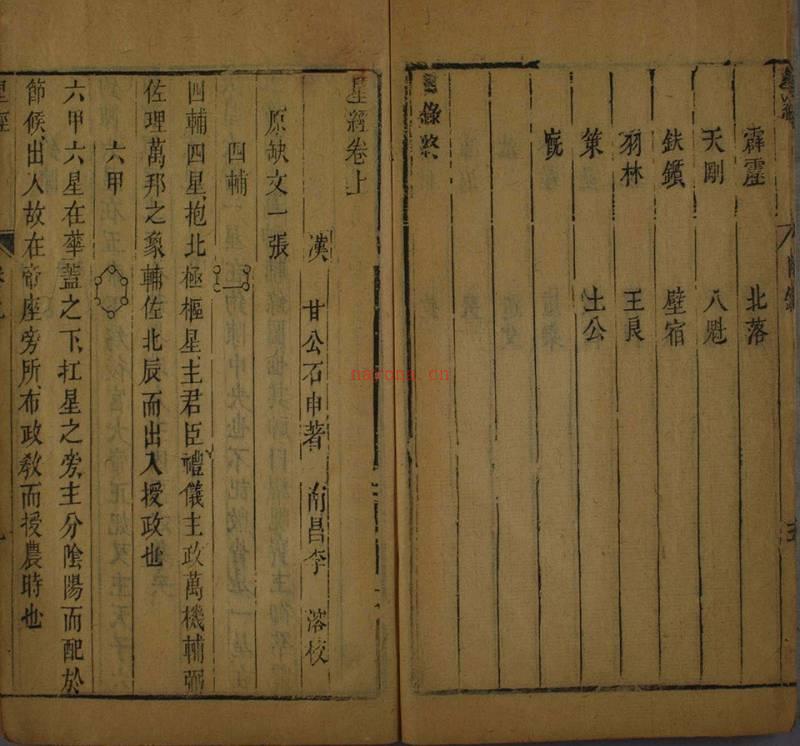 霹靂 北落
天剛 八魁
鈇鑕 壁宿
羽林 王良
策 土公
廐
星經卷上
漢 甘公石申著 南昌李 溶校
原缺文一張
四輔
四輔四星抱北極樞星主君臣禮儀主政萬機輔弼
佐理萬邦之象輔佐北辰而出入授政也
六甲
六甲六星在華蓋之下扛星之旁主分陰陽而配於
節候出入故在帝座旁所布政教而授農時也
星經
nayona.cn